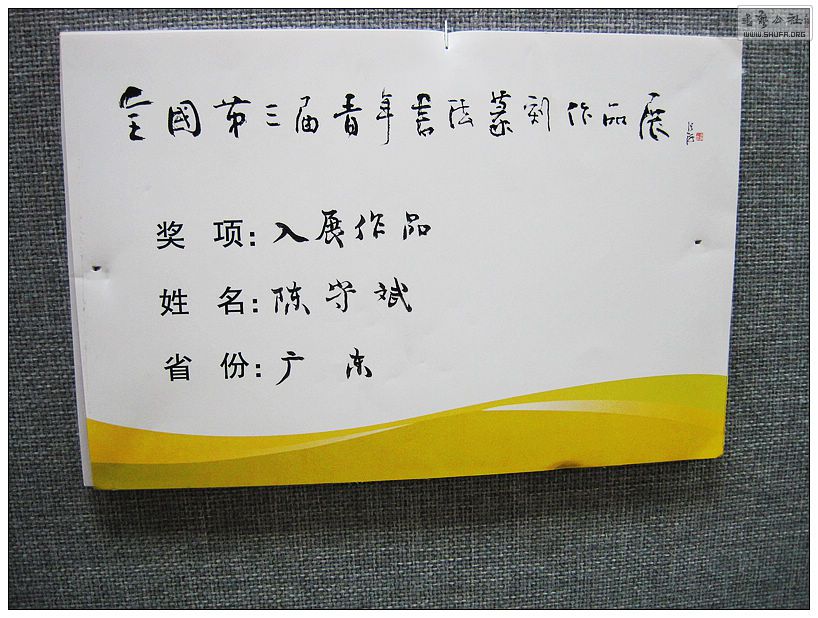 书法公社
WWW.SHUFA.ORG
全國第三届青年書法篆刻作品展
奖 项: 入展作品
姓 名: 陈守斌
省 份: 广 东